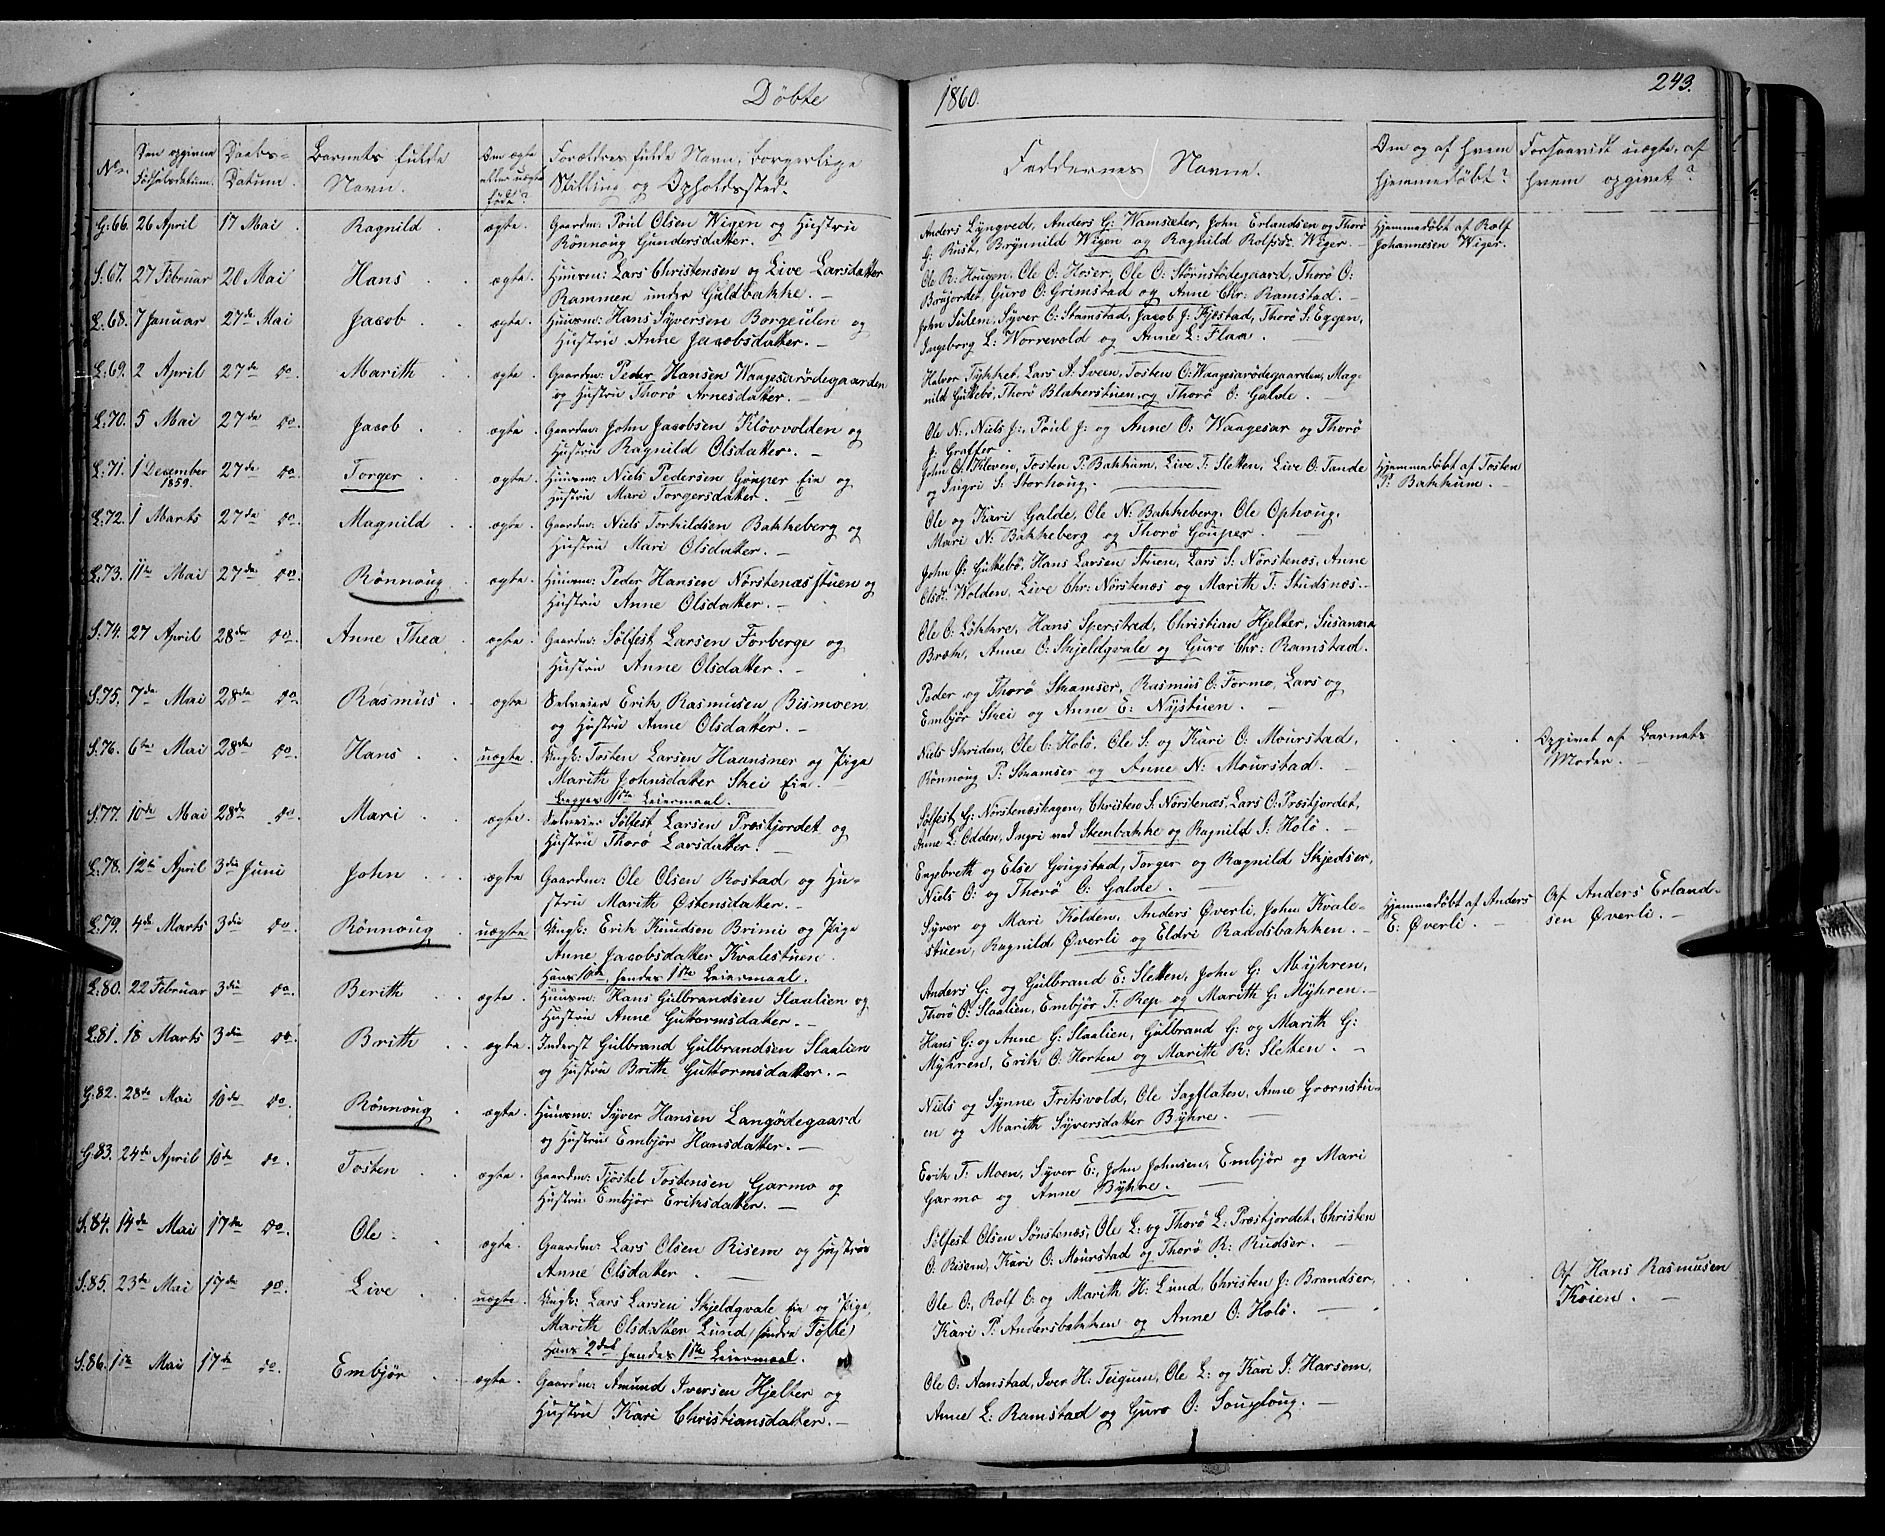 Døbte 1860. 243.
No. Den opgivne Fødselsdatum. Daabs-Datum. Barnets fulde Navn. Om ægte eller uægte født? Forældres fulde Navn, borgerlige Stilling og Opholdssted. Faddernes Navne. Om og af hvem hjemmedøbt? Forsaavidt uægte, af hvem opgivet?
G. 66. 26 April 17 Mai Ragnild ægte. Gaardm: Poul Olsen Wigen og Hustru
Rønnoug Gundersdatter.
Anders Lyngved, Anders G: Wamsæter, John Erlandsen og Thorø
G: Rust, Brynnild Wigen og Ragnild Rolfsdt. Wigen.
Hjemmedøbt af Rolf
Johannesen Wigen.
S. 67. 27 Februar 20 Mai Hans ægte. Huusm: Lars Christensen og Live Larsdatter
Rammen under Guldbakke. —
Ole R: Hougen, Ole O: Hoser, Ole O: Stornstødegaard, Thorø O:
Brujordet, Guro O: Grimstad og Anne Chr: Ramstad. —
L. 68. 7 Januar 27de Mai Jacob ægte. Huusm: Hans Syversen Borgeulen og
Hustru Anne Jacobsdatter. —
John Sulem, Syver O: Stamstad, Jacob J: Fjestad, Thorø S: Eggen,
Ingeborg L: Worrevold og Anne L: Flaa. —
L. 69. 2 April 27de do Marith ægte. Gaardm: Peder Hansen Waagesarødegaarden
og Hustru Thorø Arnesdatter. —
Halvor Tykket, Lars A: Sveen, Tosten O: Waagesarødegaarden, Mag-
nild Guttebø, Thorø Blakerstuen, og Thorø O: Galde. —
L. 70. 5 Mai 27de do. Jacob ægte. Gaardm: John Jacobsen Kløvvolden og
Hustru Ragnild Olsdatter. —
Ole N:, Niels J:, Poul J: og Anne O: Waagesar og Thorø
J: Graffer.
L. 71. 1 December 1859. 27de do. Torger ægte. Huusm: Niels Pedersen Gouper Eie og
Hustru Mari Torgersdatter. —
John O: Kleven, Tosten P: Bakkum, Live T: Sletten, Live O: Tande
og Ingri S: Storhoug.
Hjemmedøbt af Tosten
P: Bakkum. —
L. 72. 1 Marts 27de do. Magnild ægte. Gaardm: Niels Torkildsen Bakkeberg og
Hustru Mari Olsdatter. —
Ole og Kari Galde, Ole N: Bakkeberg, Ole Ophoug,
Mari N: Bakkeberg og Thorø Gouper. —
L. 73. 11te Mai 27de do. Rønnoug ægte. Huusm: Peder Hansen Nørstenæsstuen og
Hustru Anne Olsdatter. —
John O: Guttebø, Hans Larsen Stuen, Lars S: Nørstenæs, Anne
Olsdt. Wolden, Live Chr: Nørstenæs og Marith T: Studsnæs. —
S. 74. 27 April 28de do. Anne Thea ægte. Gaardm: Sølfest Larsen Forberge og
Hustru Anne Olsdatter. —
Ole O: Løkkre, Hans Sperstad, Christian Hjelter, Susanna
Bræk, Anne O: Skjeldqvale og Guro Chr: Ramstad.
S. 75. 7de Mai 28de do. Rasmus ægte Selveier Erik Rasmusen Bismoen
og Hustru Anne Olsdatter. —
Peder og Thorø Stramser, Rasmus O: Formo, Lars og
Embjør Skei og Anne E: Nystuen. —
S. 76. 6te Mai 28de do. Hans uægte. Ungk: Tosten Larsen Haansner og Pige
Marith Johnsdatter Skei Eie. —
Begges 1ste Leiermaal.
Niels Skriden, Ole O: Holø, Ole S: og Kari O: Mourstad,
Rønnoug P: Stramser og Anne N: Mourstad. —
Opgivet af Barnets
Moder. —
S. 77. 10de Mai 28de do. Mari ægte. Selveier Sølfest Larsen Præstjordet og
Hustru Thorø Larsdatter. —
Sølfest G: Nørstenæshagen, Christen S: Nørstenæs, Lars O: Præstjordet,
Anne L: Odden, Ingri ved Steenbakke og Ragnild I: Holø. —
L. 78. 12te April 3die Juni John ægte Gaardm: Ole Olsen Rostad og Hu-
stru Marith Østensdatter. —
Engebreth og Else Gougstad, Torger og Ragnild Skjedser,
Niels O: og Thorø O: Galde. —
L. 79. 4de Marts 3die do. Rønnoug uægte Ungk: Erik Knudsen Brimi og Pige
Anne Jacobsdatter Kvalestuen.
Hans 10de hendes 1ste Leiermaal.
Syver og Mari Kolden, Anders Øverli, John Kvale-
stuen, Ragnild Øverli og Eldri Raadsbakken. —
Hjemmedøbt af Anders
E: Øverli. —
Af Anders Erland-
sen Øverli. —
L. 80. 22 Februar 3die do. Berith ægte. Huusm: Hans Gulbrandsen Slaalien og
Hustru Anne Guttormsdatter. —
Anders G: og Gulbrand E: Sletten, John G: Myhren,
Thorø O: Slaalien, Embjør T: Rep og Marith G: Myhren. —
L. 81. 18 Marts 3die do. Brith ægte. Inderst Gulbrand Gulbrandsen Slaalien
og Hustru Brith Guttormsdatter. —
Hans G: og Anne G: Slaalien, Gulbrand G: og Marith G:
Myhren, Erik O: Horten og Marith R: Sletten. —
G. 82. 28de Mai 10de do. Rønnoug ægte. Huusm: Syver Hansen Langødegaard
og Hustru Embjør Hansdatter. —
Niels og Synne Fritsvold, Ole Sagflaten, Anne Grærnstu-
en og Marith Syversdatter Byhre. —
G. 83. 24de April 10de do. Tosten ægte. Gaardm: Tjøstel Tostensen Garmo og
Hustru Embjør Eriksdatter. —
Erik T: Moen, Syver E:, John Johnsen, Embjør og Mari
Garmo og Anne Byhre. —
S. 84. 14de Mai 17de do. Ole ægte. Gaardm: Lars Olsen Risem og Hustru
Anne Olsdatter. —
Sølfest Olsen Sønstenæs, Ole L: og Thorø L: Præstjordet, Christen
O: Risem, Kari O: Mourstad og Thorø R: Rudser. —
S. 85. 23de Mai 17de do. Live uægte. Ungk: Lars Larsen Skjeldqvale Eie og Pige
Marith Olsdatter Lund (søndre Tofte)
Hans 2det hendes 1ste Leiermaal.
Ole O:, Rolf O: og Marith H: Lund, Christen J: Brandser,
Kari P: Andersbakken og Anne O: Holø. —
Af Hans Rasmusen
Kvien. —
S. 86. 1ste Mai 17de do. Embjør ægte. Gaardm: Amund Iversen Hjelter og
Hustru Kari Christiansdatter. —
Ole O: Aanstad, Iver H: Teigum, Ole L: og Kari I: Harsem,
Anne L: Ramstad og Guro O: Sougloug. —